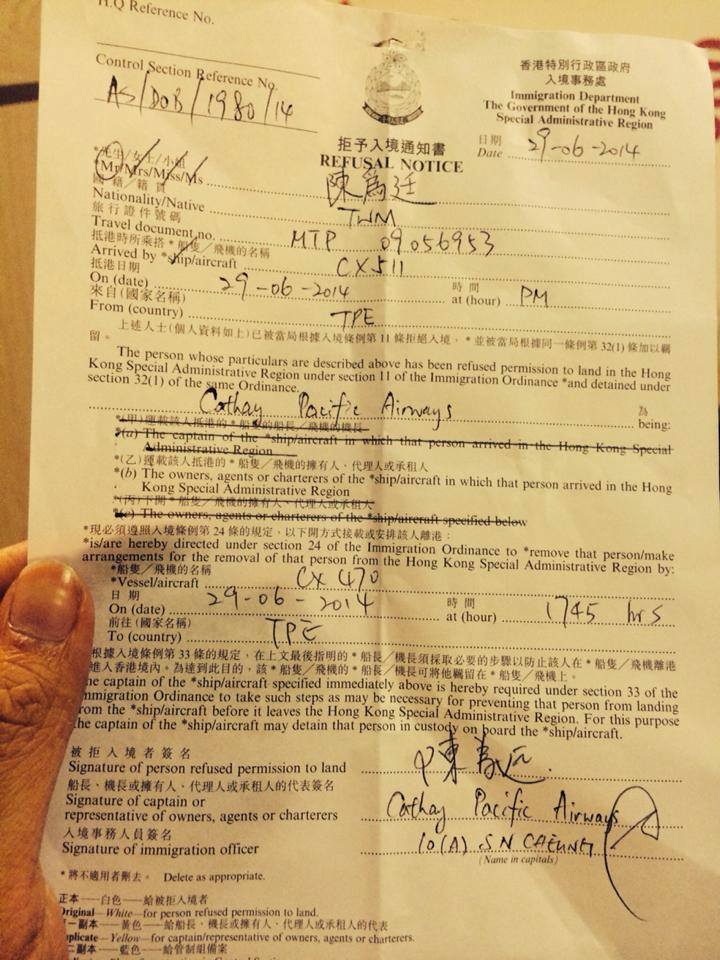 H.Q Reference No.
Control Section Reference No.
AS/DOB/1980/14
香港特別行政區政府
入境事務處
Immigration Department
The Government of the Hong Kong
Special Administrative Region
日期
Date 29-06-2014
拒予入境通知書
REFUSAL NOTICE
*先生/女士/小姐
(Mr/Mrs/Miss/Ms 陳為廷
國籍/籍貫
Nationality/Native TWM
旅行證件號碼
Travel document no. MTP 09056953
抵港時所乘搭*船隻/飛機的名稱
Arrived by *ship/aircraft CX511
抵港日期
On (date) 29-06-2014 時間 at (hour) PM
來自(國家名稱)
From (country) TPE
上述人士(個人資料如上)已被當局根據入境條例第11條拒絕入境,*並被當局根據同一條例第32(1)條加以羈
留。
The person whose particulars are described above has been refused permission to land in the Hong
Kong Special Administrative Region under section 11 of the Immigration Ordinance *and detained under
section 32(1) of the same Ordinance.
Cathay Pacific Airways 為 being:
*(甲)運載該人抵港的*船隻的船長/飛機的機長
*(a) The captain of the *ship/aircraft in which that person arrived in the Hong Kong Special
Administrative Region
*(乙)運載該人抵港的*船隻/飛機的擁有人、代理人或承租人
*(b) The owners, agents or charterers of the *ship/aircraft in which that person arrived in the Hong
Kong Special Administrative Region
*(丙)下開*船隻/飛機的擁有人、代理人或承租人
*(c) The owners, agents or charterers of the *ship/aircraft specified below
*現必須遵照入境條例第24條的規定,以下開方式接載或安排該人離港:
*is/are hereby directed under section 24 of the Immigration Ordinance to *remove that person/make
arrangements for the removal of that person from the Hong Kong Special Administrative Region by:
*船隻/飛機的名稱
*Vessel/aircraft CX 470
日期
On (date) 29-06-2014 時間 at (hour) 1745 hrs
前往(國家名稱)
To (country) TPE
根據入境條例第33條的規定,在上文最後指明的*船長/機長須採取必要的步驟以防止該人在*船隻/飛機離港
進入香港境內。為達到此目的,該*船隻/飛機的*船長/機長可將他羈留在*船隻/飛機上。
The captain of the *ship/aircraft specified immediately above is hereby required under section 33 of the
Immigration Ordinance to take such steps as may be necessary for preventing that person from landing
from the *ship/aircraft before it leaves the Hong Kong Special Administrative Region. For this purpose
the captain of the *ship/aircraft may detain that person in custody on board the *ship/aircraft.
被拒入境者簽名
Signature of person refused permission to land 陳為廷
船長、機長或擁有人、代理人或承租人的代表簽名
Signature of captain or
representative of owners, agents or charterers Cathay Pacific Airways
入境事務人員簽名
Signature of immigration officer IO(A) SN CHEUNG
(Name in capitals)
*將不適用者刪去。 Delete as appropriate.
正本——白色——給被拒入境者
Original—White—for person refused permission to land.
第一副本——黃色——給船長、機長或擁有人、代理人或承租人的代表
Duplicate—Yellow—for captain/representative of owners, agents or charterers.
第二副本——藍色——給管制組備案